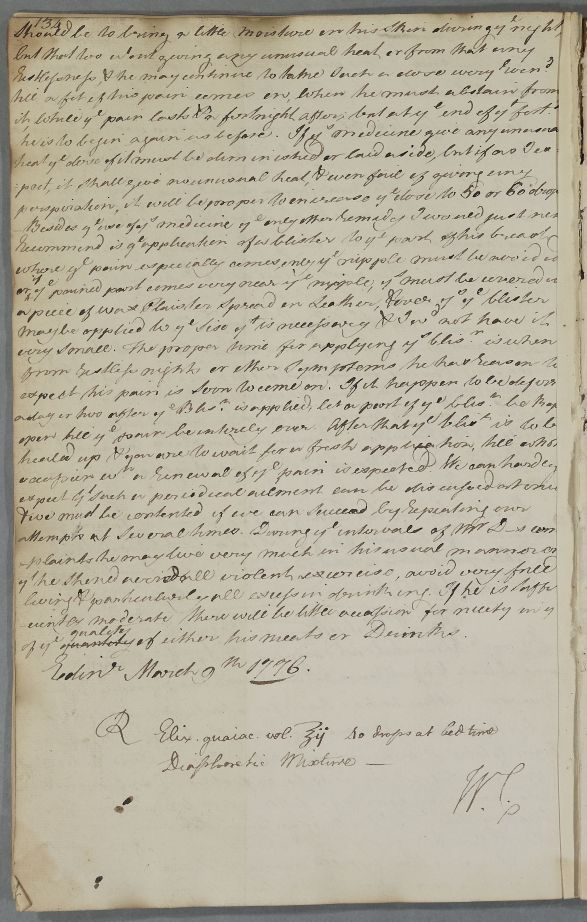 134
Should be to bring a little moisture on his Skin during ye night
but that too wt out giving any unusual heat or from that any
restlessness & he may continue to take Such a dose every Even.g
till a fit of his pain comes on, when he must abstain from
it while ye pain lasts & a fortnight after; but at ye end of ye fort.t
he is to begin again as before. If ys medicine give any unusual
heat ye dose of it must be dimin ished or laid aside, but if as I ex-
-pect, it shall give no unusual heat, & even fail of giving any
perspiration, it will be proper to encrease ye dose to 50 or 60 drops
Besides ye use of ys medicine ye only other remedies I would just now
recommend is ye application of a blister to ye part of his breast
where ye pain especially comes, only ye nipple must be avoided
or if ye pained part comes very near ye nipple, ys must be covered wt
a piece of wax Plaister Spread on Leather, & over ys ye blister
may be applied to ye Size yt is necessary & I wd not have it
very Small. The proper time for applying ys blis.r is when
from restless nights or other Symptoms he has reason to
expect his pain is Soon to come on. If it happen to be before
a day or two after ye Blis.r is applied, let a part of ye blis.r be kept
open till ye pain be intirely over. After that ye blis.r is to be
healed up & you are to wait for a fresh application, till another
occasion wn a renewal of ye pain is expected. We can hardly
expect yt Such a periodical ailment can be discussed at once
& we must be contented if we can Succeed by repeating our
attempts at Several times. During ye intervals of Mr D—s com
-plaints he may live very much in his usual manner only
yt he Should avoid all violent exercise, avoid very full
living & particularly all excess in drinking. If he is Suffi-
-ciently moderate there will be little occasion for nicety in ys
of ye quality of either his meats or Drinks.
Edinr March 9th 1776.
R Elix. guaiac. vol. ʒij 50 drops at bed time
Diaphoretic Mixture —
W.C.